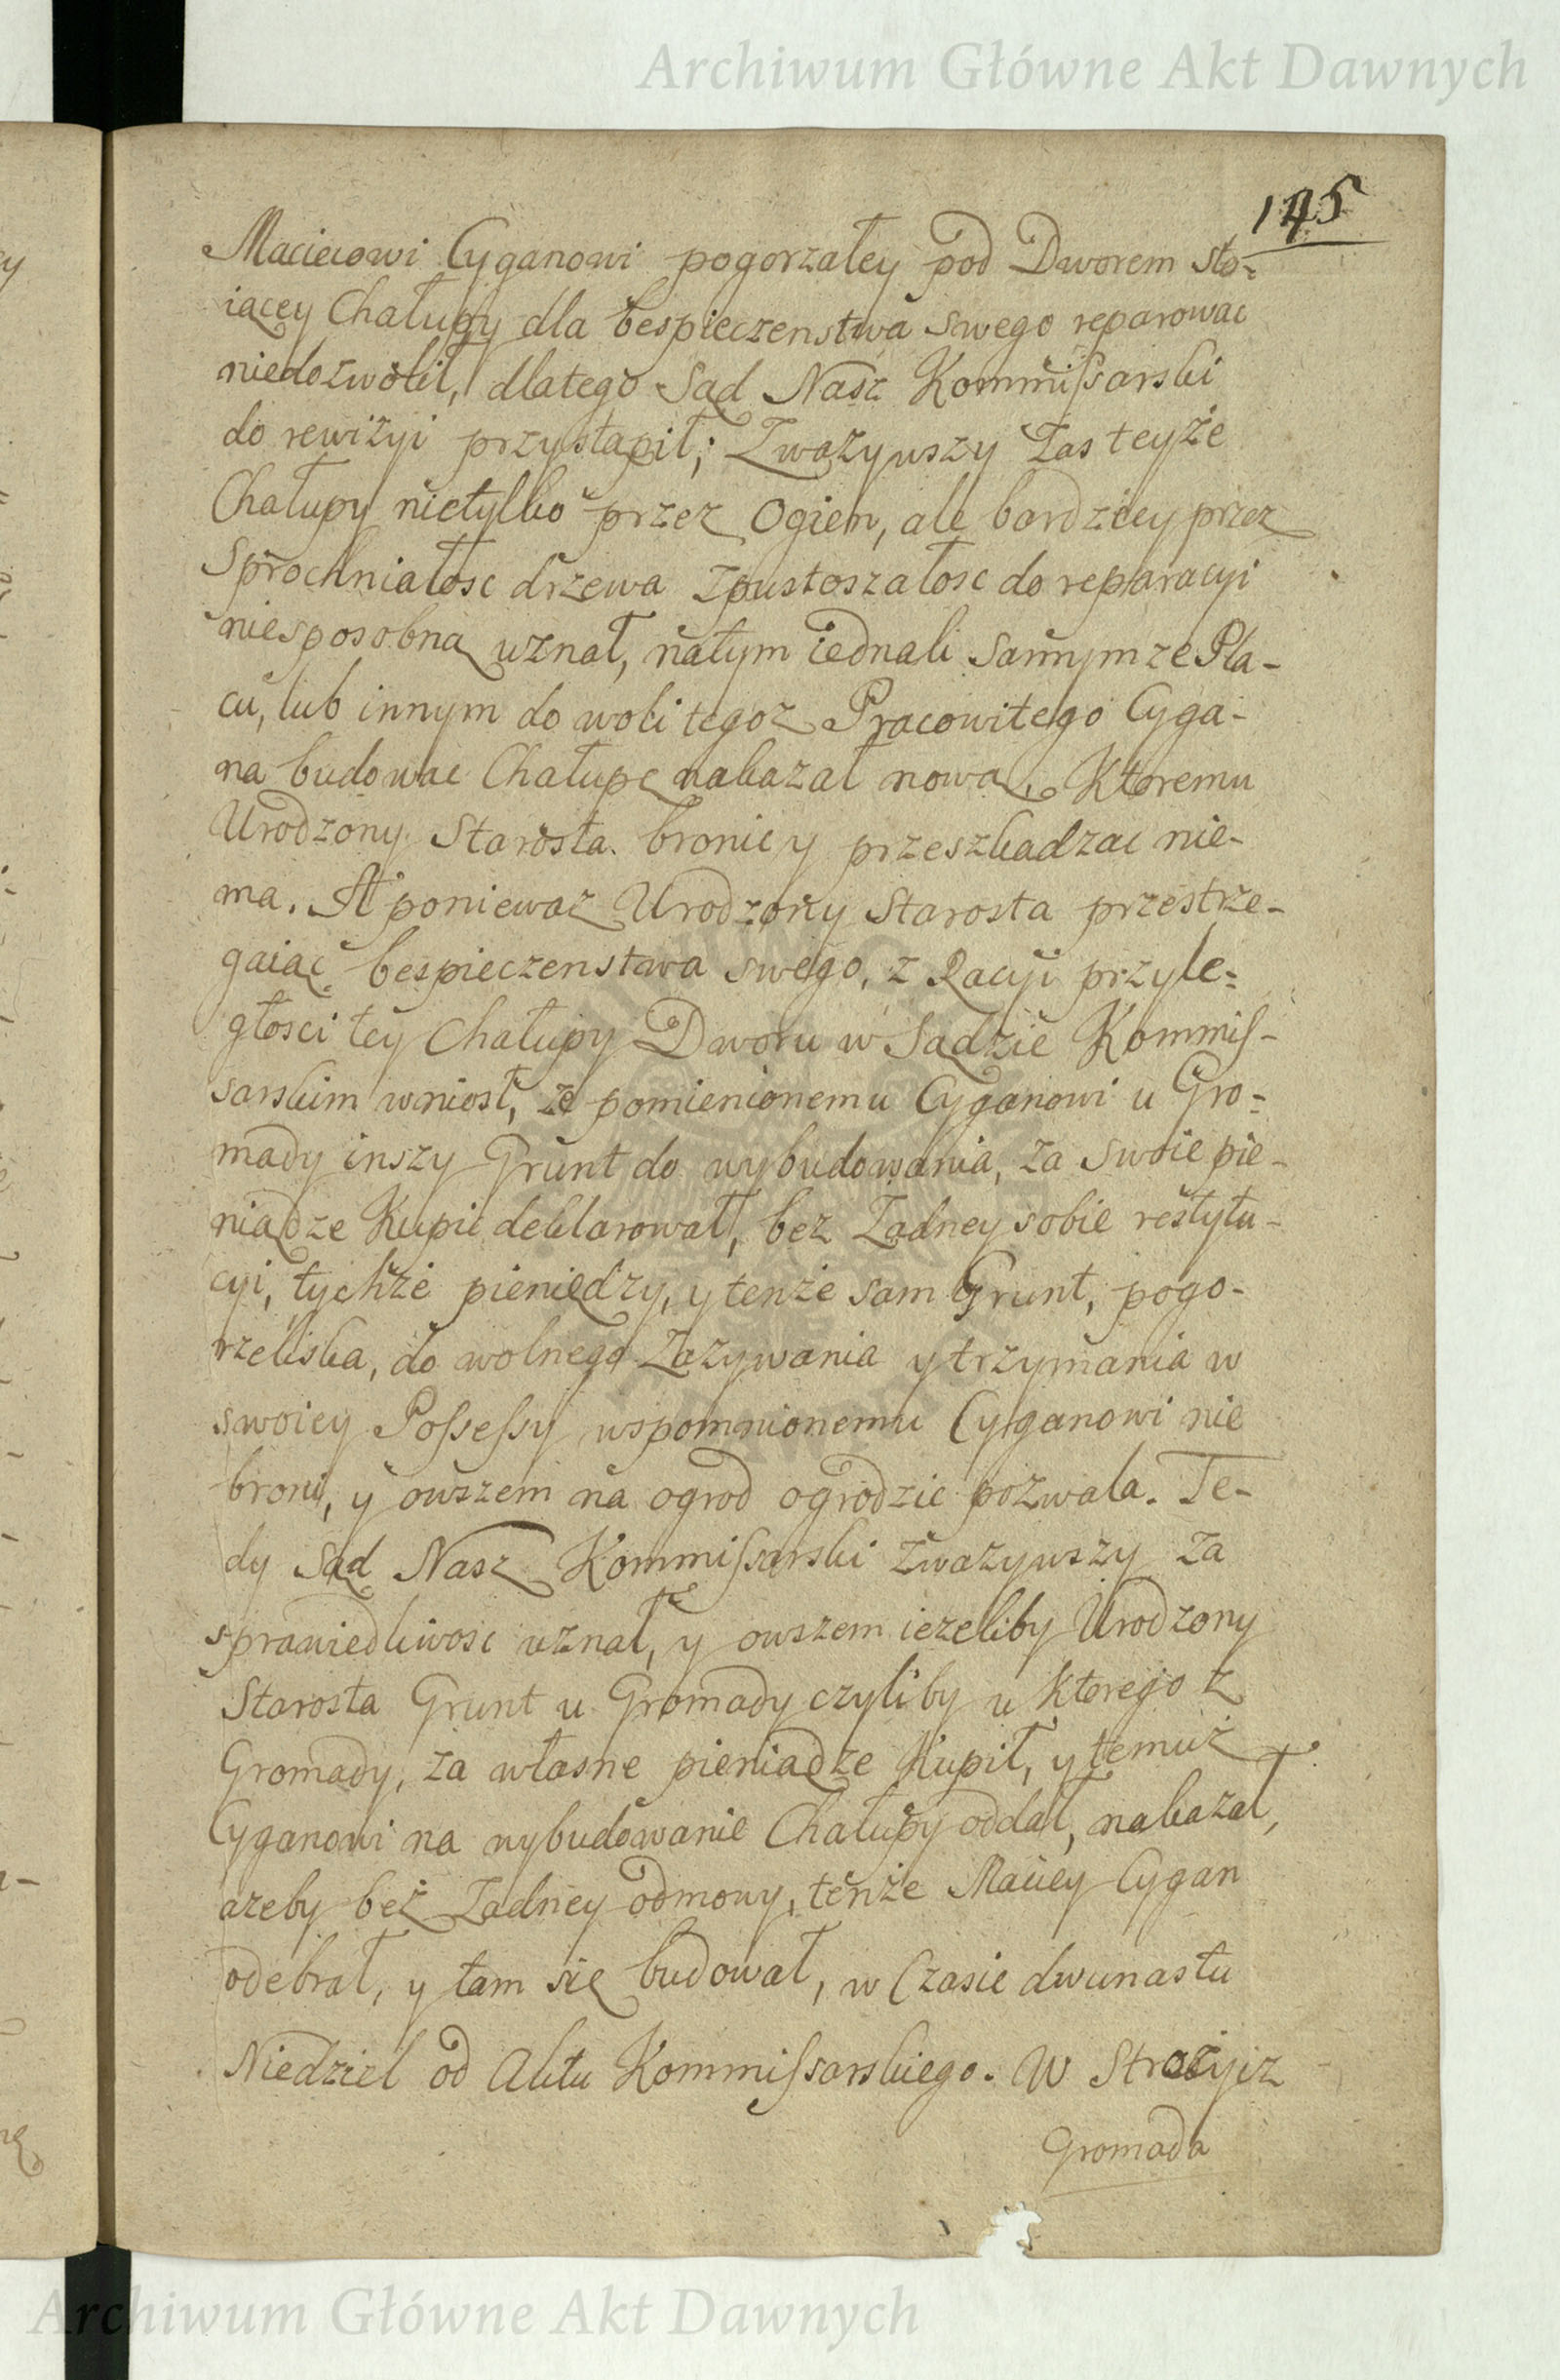 Archiwum Główne Akt Dawnych
145
Macieiowi Cyganowi pogorzałey pod Dworem sto=
iącey Chałupy dla bespieczenstwa swego reparowac
niedozwolił, dlatego Sąd Nasz Kommissarski
do rewizyi przystąpił; Zwazywszy Zas teyże
Chałupy nietylko przez Ogien, ale bardziey przez
Sprochniałosc drzewa Zpustoszałosc do reparacyi
niesposobną uznał, natym iednak samymze Pla-
cu, lub innym do woli tegoz Pracowitego Cyga-
na budowac Chałupę nakazał nową, Ktoremu
Urodzony Starosta bronic y przeszkadzac nie-
ma. A poniewaz Urodzony Starosta przestrze-
gaiąc bespieczenstwa swego, z Racyi przyle=
głosci tey Chałupy Dworu w Sądzie Kommis-
sarskim wniosł, że pomienionemu Cyganowi u Gro=
mady inszy Grunt do wybudowania, za swoie pie-
niądze Kupic deklarował, bez Zadney sobie restytu-
cyi, tychże pieniędzy, y tenże sam Grunt, pogo-
rzeliska, do wolnego Zazywania y trzymania w
swoiey Possessy wspomnionemu Cyganowi nie
broni, y owszem na ogrod ogrodzic pozwala. Te-
dy Sąd Nasz Kommissarski zwazywszy za
sprawiedliwosc uznał, y owszem iezeliby Urodzony
Starosta Grunt u Gromady czyliby u Ktorego z
Gromady, za własne pieniądze Kupił, y temuż
Cyganowi na wybudowanie Chałupy oddał, nakazał,
azeby bez Zadney odmowy, tenże Maciey Cygan
odebrał, y tam się budował, w Czasie dwunastu
Niedziel od Aktu Kommissarskiego. W
Gromada
Archiwum Główne Akt Dawnych